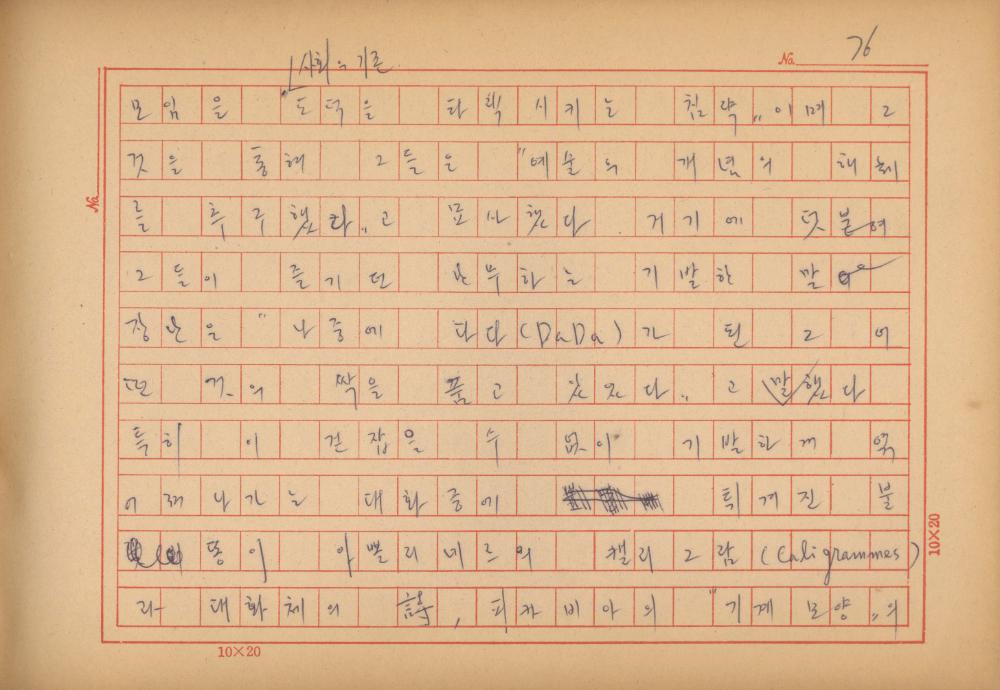 No. 76
사회의 기존
모임을 도덕을 타락시키는 첨략"이며 그
것을 통해 그들은 "예술의 개념의 해체
를 추구했다"고 묘사했다 거기에 덧붙여
그들이 즐기던 난무하는 기발한 말
장난은 "나중에 다다(DaDa)가 된 그 어
떤 것의 싹을 품고 있었다"고 말했다
특히 이 걷잡을 수 없이 기발한 게
어 나가는 대화중에 튀겨진 불
똥이 아뽈리네르의 캘리그람(Caligrammes)
과 대화체의 詩, 피카비아의 "기계모양"의
No.
10×20
10×20